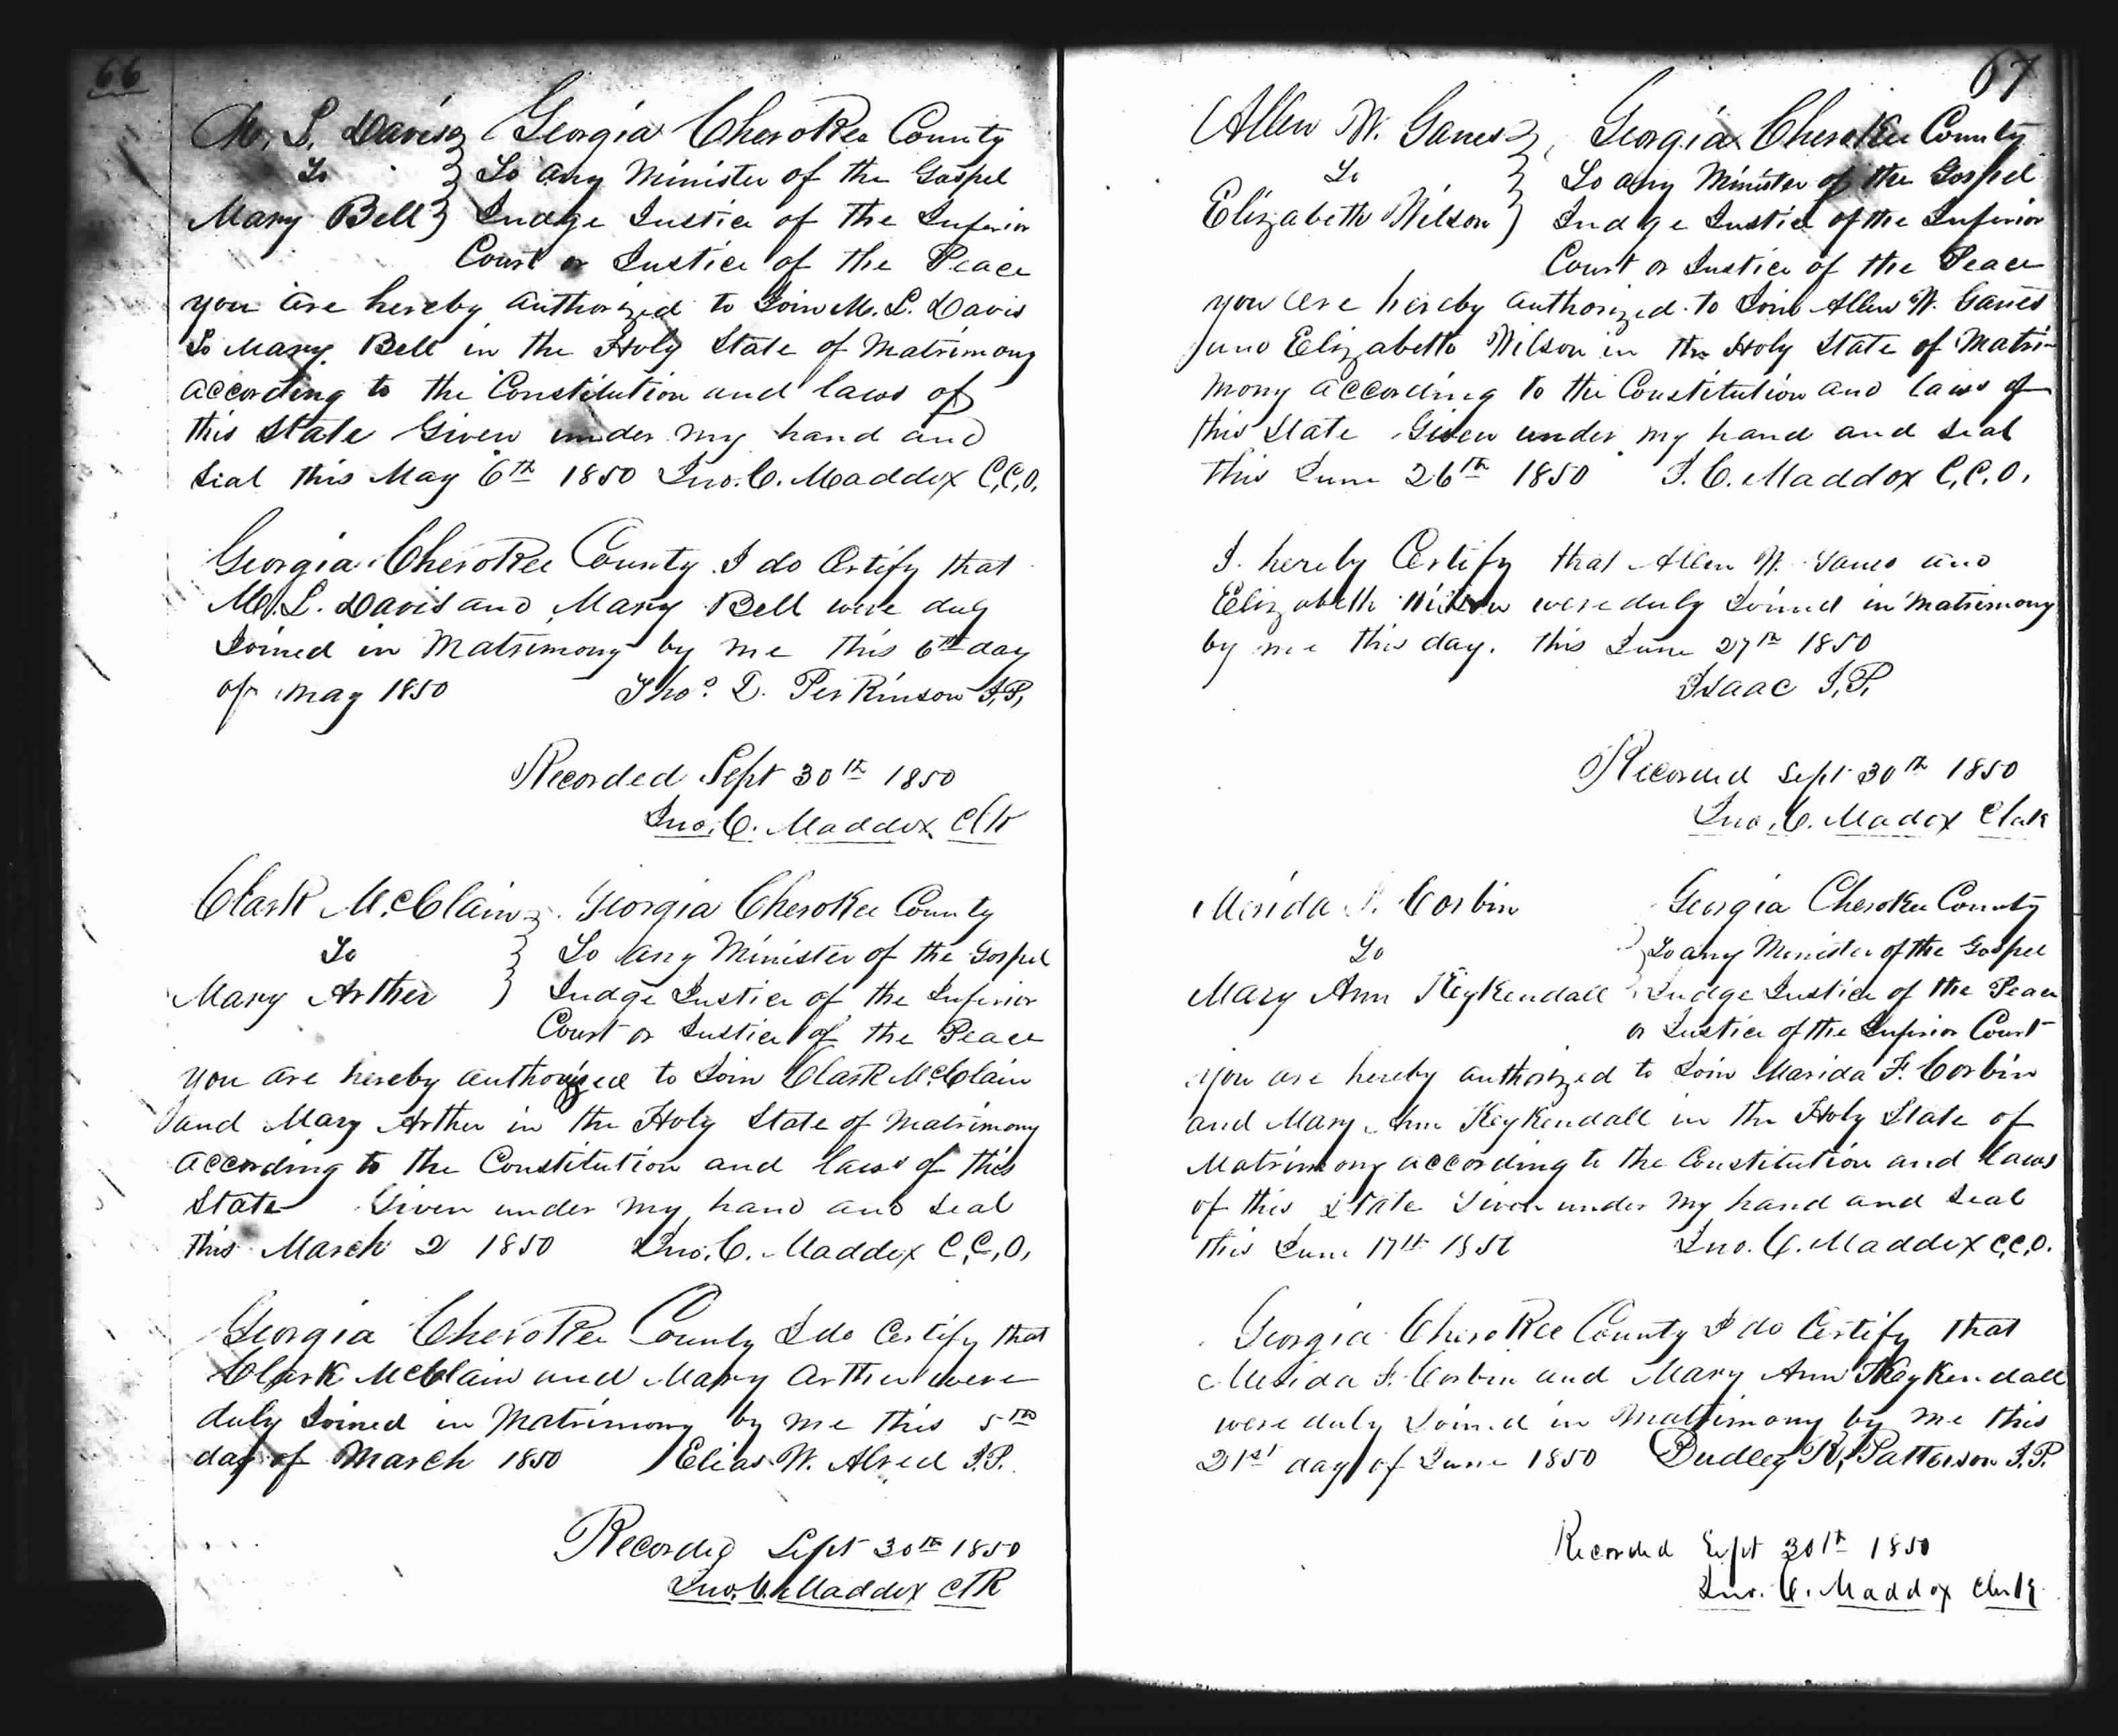 66
M. L. Davis Georgia Cherokee County
To To any Minister of the Gospel
Mary Bell Judge Justice of the Inferior
Court or Justice of the Peace
you are hereby authorized to Join M. L. Davis
To Mary Bell in the Holy State of Matrimony
according to the Constitution and laws of
this State Given under my hand and
Seal this May 6th 1850 Jno. C. Maddox C.C.O.
Georgia Cherokee County I do Certify that
M. L. Davis and Mary Bell were duly
Joined in Matrimony by me this 6th day
of May 1850 Thos. D. Perkinson J.P.
Recorded Sept 30th 1850
Jno. C. Maddox Clk
Clark McClain Georgia Cherokee County
To To any Minister of the Gospel
Mary Arther Judge Justice of the Inferior
Court or Justice of the Peace
you are hereby authorized to Join Clark McClain
and Mary Arther in the Holy State of Matrimony
according to the Constitution and laws of this
State Given under my hand and Seal
this March 2 1850 Jno. C. Maddox C.C.O.
Georgia Cherokee County I do Certify that
Clark McClain and Mary Arther were
duly Joined in Matrimony by me this 5th
day of March 1850 Elias W. Alred J.P.
Recorded Sept 30th 1850
Jno. C. Maddox Clk
67
Allen W. Ganes Georgia Cherokee County
To To any Minister of the Gospel
Elizabeth Wilson Judge Justice of the Inferior
Court or Justice of the Peace
you are hereby authorized to Join Allen W. Ganes
and Elizabeth Wilson in the Holy State of Matri-
mony according to the Constitution and laws of
this State Given under my hand and Seal
this June 26th 1850 J. C. Maddox C.C.O.
I hereby Certify that Allen W. Ganes and
Elizabeth Wilson were duly Joined in Matrimony
by me this day. this June 27th 1850
Isaac J.P.
Recorded Sept 30th 1850
Jno. C. Madox Clark
Merida Corbin Georgia Cherokee County
To To any Minister of the Gospel
Mary Ann Keykendall Judge Justice of the Peace
or Justice of the Inferior Court
you are hereby authorized to Join Marida F. Corbin
and Mary Ann Keykendall in the Holy State of
Matrimony according to the Constitution and laws
of this State Given under my hand and Seal
this June 17th 1850 Jno. C. Maddox C.C.O.
Georgia Cherokee County I do Certify that
Merida F. Corbin and Mary Ann Keykendall
were duly Joined in Matrimony by me this
21st day of June 1850 Dudley R. Patterson J.P.
Recorded Sept 30th 1850
Jno. C. Maddox Clerk